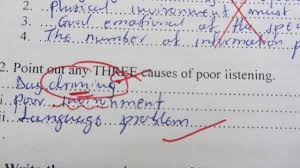 2. Physical invironment must
3. Good emotional of the spe
4. The number of information p
2. Point out any THREE causes of poor listening.
Day dreming
ii. Poor invironment
iii. Language problem